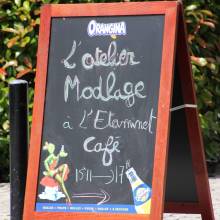 ORANGINA
L'atelier
Modlage
à L'Etaminet
Café
15H → 17H